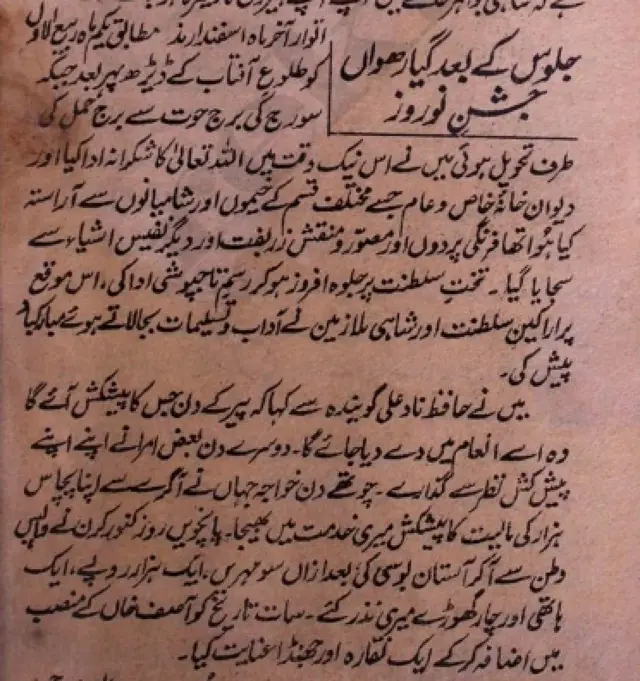 جلوس کے بعد گیارھواں
جشنِ نوروز
اتوار آخر ماہ اسفندارمذ مطابق یکم ربیع الاول
کو طلوع آفتاب کے ڈیڑھ پہر بعد جبکہ
سورج کی برج حوت سے برج حمل کی
طرف تحویل ہوئی میں نے اس نیک وقت میں اللہ تعالیٰ کا شکرانہ ادا کیا اور
دیوان خانۂ خاص و عام جسے مختلف قسم کے خیموں اور شامیانوں سے آراستہ
کیا ہُوا تھا فرنگی پردوں اور مصوّر و منقش زربفت اور دیگر نفیس اشیاء سے
سجایا گیا۔ تختِ سلطنت پر جلوہ افروز ہو کر رسمِ تاجپوشی ادا کی، اس موقع
پر اراکین سلطنت اور شاہی ملازمین نے آداب و تسلیمات بجا لاتے ہوئے مبارکباد
پیش کی۔
میں نے حافظ ناد علی گویندہ سے کہا کہ پیر کے دن جس کا پیشکش آئے گا
وہ اسے انعام میں دے دیا جائے گا۔ دوسرے دن بعض امرا نے اپنے اپنے
پیش کش نظر سے گذارے۔ چوتھے دن خواجہ جہاں نے آگرے سے اپنا پچاس
ہزار کی مالیت کا پیشکش میری خدمت میں بھیجا۔ پانچویں روز کنور کرن نے واپس
وطن سے آ کر آستان بوسی کی بعد ازاں سو مہریں، ایک ہزار روپے، ایک
ہاتھی اور چار گھوڑے میری نذر کئے۔ سات تاریخ کو آصف خاں کے منصب
میں اضافہ کر کے ایک نقارہ اور جھنڈا عنایت کیا۔